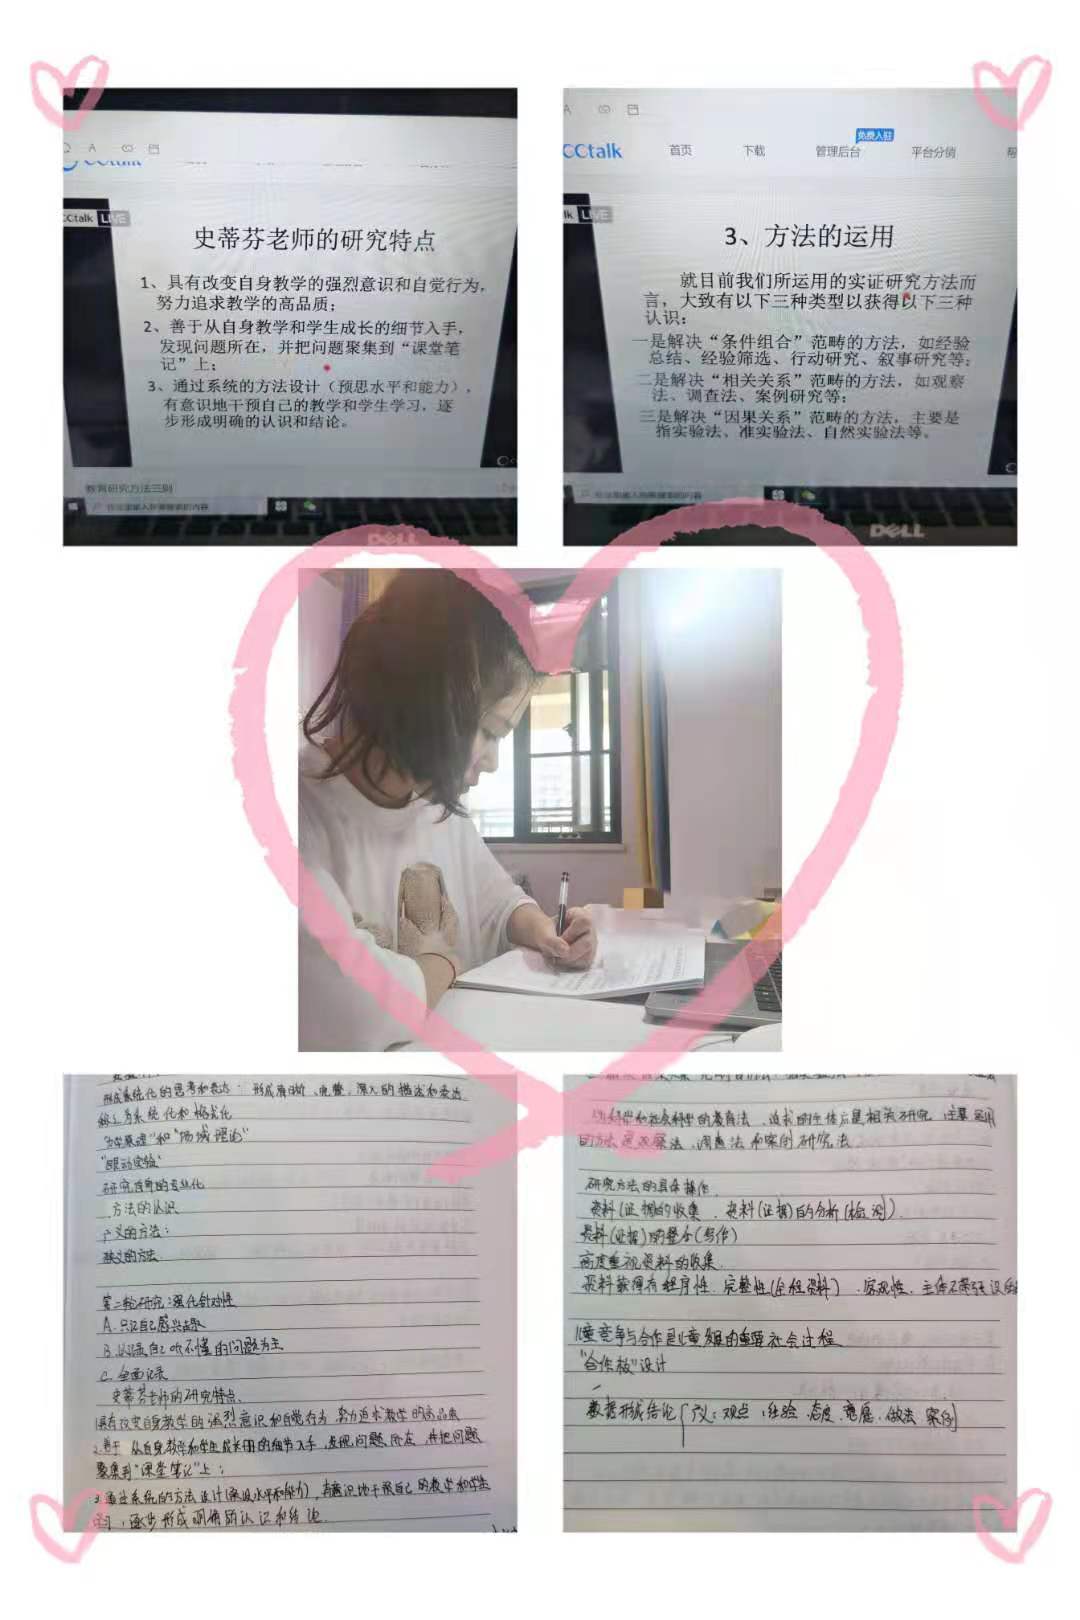 CCtalk
CCtalk LIVE
史蒂芬老师的研究特点
1、具有改变自身教学的强烈意识和自觉行为，
努力追求教学的高品质；
2、善于从自身教学和学生成长的细节入手，
发现问题所在，并把问题聚集到“课堂笔
记”上；
3、通过系统的方法设计（预思水平和能力），
有意识地干预自己的教学和学生学习，逐
步形成明确的认识和结论。
教育研究方法三则
在这里输入你要搜索的内容
DELL
免费入驻
CCtalk 首页 下载 管理后台 平台分销
LIVE
3、方法的运用
就目前我们所运用的实证研究方法而
言，大致有以下三种类型以获得以下三种
认识：
一是解决“条件组合”范畴的方法，如经验
总结、经验筛选、行动研究、叙事研究等；
二是解决“相关关系”范畴的方法，如观察
法、调查法、案例研究等；
三是解决“因果关系”范畴的方法，主要是
指实验法、准实验法、自然实验法等。
在这里输入你要搜索的内容
DELL
形成系统化的思考和表达：形成清晰、完整、深入的描述和表达
系统化和格式化
和“场域理论”
“眼动实验”
研究自身的专业化
方法的认识
广义的方法：
狭义的方法
第二轮研究：强化针对性
A.只记自己感兴趣
B.以记录自己听不懂的问题为主
C.全面记录
史蒂芬老师的研究特点
1.具有改变自身教学的强烈意识和自觉行为 努力追求教学的高品质
2.善于从自身教学和学生成长的细节入手，发现问题所在，并把问题
聚集到“课堂笔记”上；
3.通过系统的方法设计（预设水平和能力），有意识地干预自己的教学和学生
学习，逐步形成明确的认识和结论.
和社会科学的教育法、追求的主体应是相关研究，主要运用
的方法是观察法、调查法和案例研究法
研究方法的具体操作.
资料（证据的收集、资料（证据）的分析（检测）.
资料（证据）的整合（写作）
高度重视资料的收集.
资料获得有程序性、完整性（全程资料）、客观性、
儿童竞争与合作是儿童发展的重要社会过程
“合作板”设计
数据形成结论 广义：观点、经验、态度、意愿、做法 案例